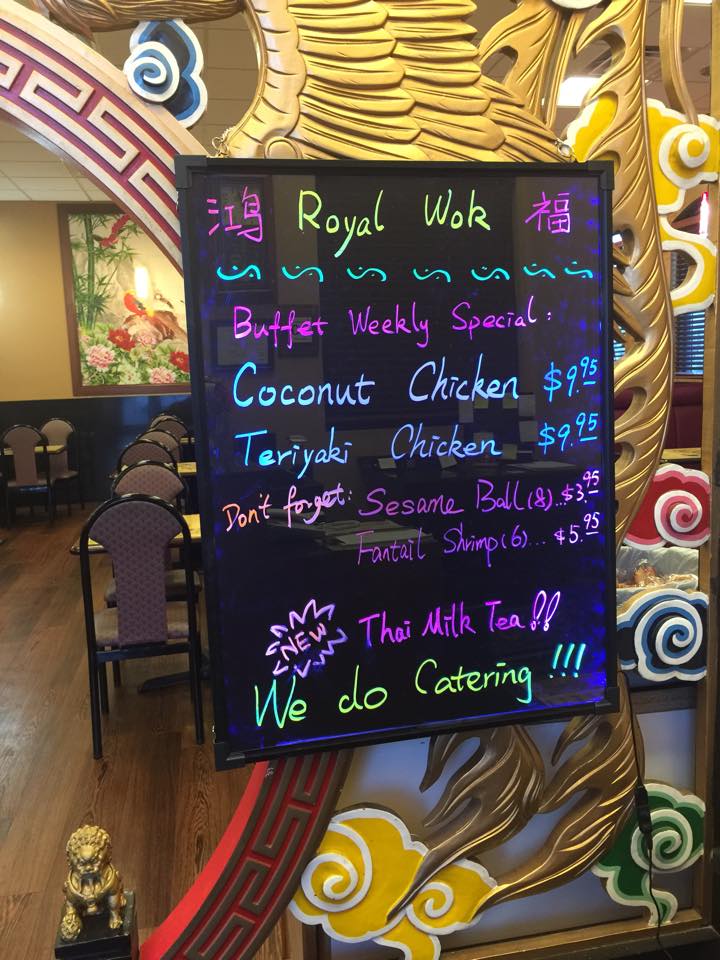 鸿 Royal Wok 福
Buffet Weekly Special:
Coconut Chicken $9.95
Teriyaki Chicken $9.95
Don't forget: Sesame Ball(8)...$3.95
Fantail Shrimp(6)... $5.95
NEW Thai Milk Tea!!
We do Catering !!!